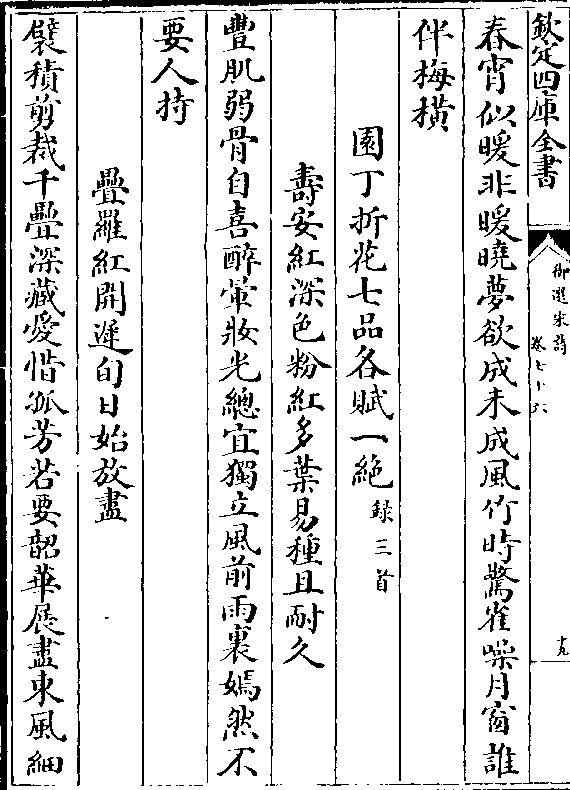 欽定四庫全書
御選宋詩
卷七十六
十九
春宵似暖非暖曉夢欲成未成風竹時驚雀噪月窗誰
伴梅橫
園丁折花七品各賦一絶錄三首
壽安紅深色粉紅多葉易種且耐久
豐肌弱骨自喜醉暈妝光總宜獨立風前雨裏嫣然不
要人持
疊羅紅開遲旬日始放盡
襞積剪裁千疊深藏愛惜孤芳若要韶華展盡東風細